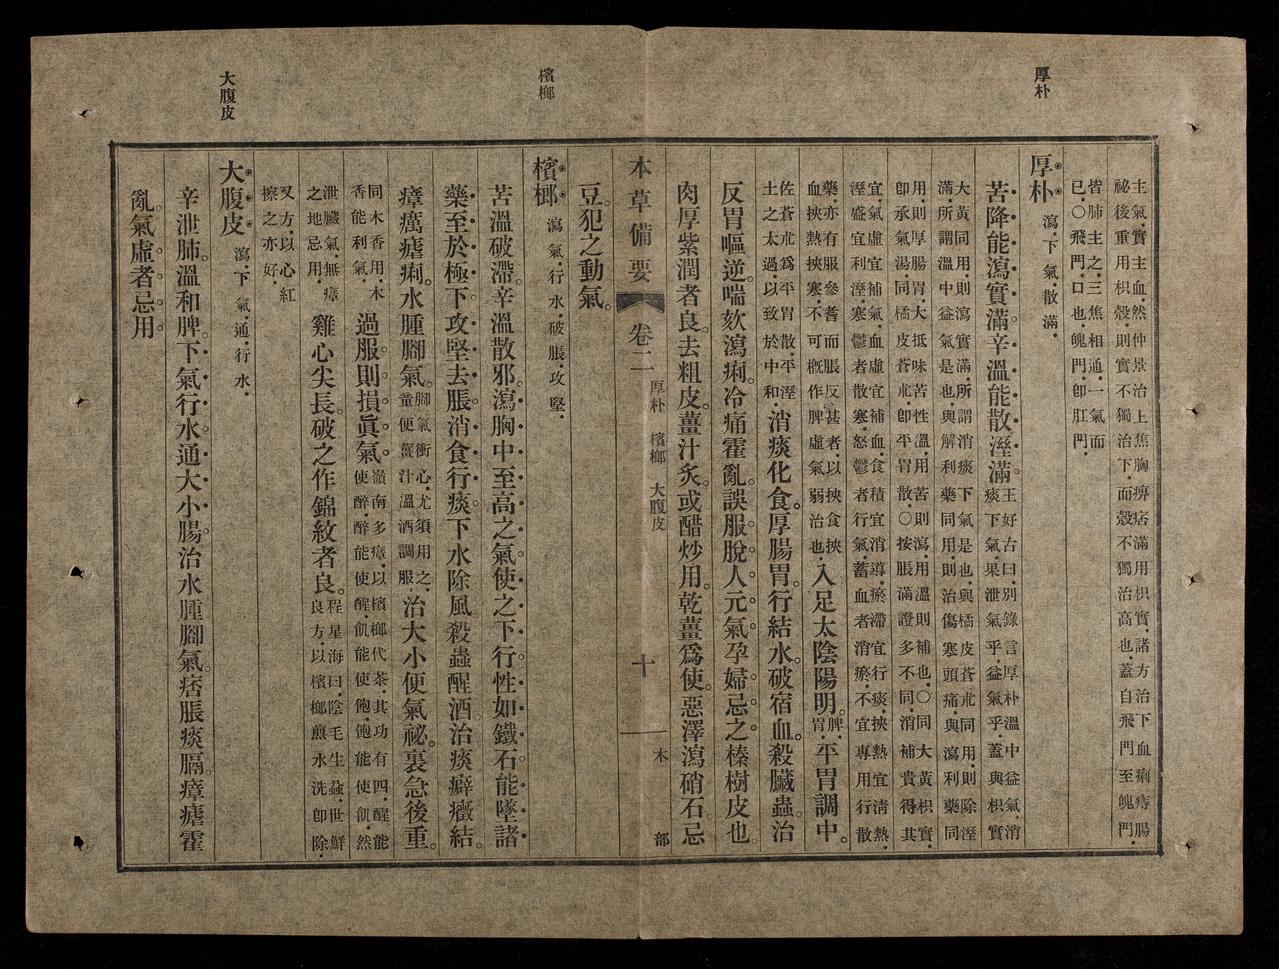 厚朴
主氣實主血．然仲景治上焦胸痹痞滿用枳實．諸方治下血痢痔腸
祕後重用枳殼．則實不獨治下．而殼不獨治高也．蓋自飛門至魄門．
皆肺主之．三焦相通．一氣而
已．〇飛門．口也．魄門．卽肛門．
厚朴 瀉．下氣．散滿．
苦降能瀉實滿．辛溫能散溼滿。王好古曰．別錄言厚朴溫中益氣．消
痰下氣．果泄氣乎．益氣乎．蓋與枳實
大黃同用．則瀉實滿．所謂消痰下氣是也．與橘皮蒼朮同用．則除溼
滿．所謂溫中益氣是也．與解利藥同用．則治傷寒頭痛．與瀉利藥同
用．則厚腸胃．大抵味苦性溫．用苦則瀉．用溫則補也．〇同大黃枳實．
卽承氣湯．同橘皮蒼朮．卽平胃散．〇按脹滿證多不同．消補貴得其
宜．氣虛宜補氣．血虛宜補血．食積宜消導．瘀滯宜行痰．挾熱宜清熱．
溼盛宜利溼．寒鬱者散寒．怒鬱者行氣．蓄血者消瘀．不宜專用行散
藥．亦有服參耆而脹反甚者．以挾食挾
血挾熱挾寒．不可概作脾虛氣弱治也．入足太陰陽明。脾．胃．平胃調中。
佐蒼朮爲平胃散．平溼
土之太過．以致於中和．消痰化食。厚腸胃。行結水。破宿血。殺臟蟲。治
反胃嘔逆。喘欬瀉痢。冷痛霍亂。誤服脫人元氣。孕婦忌之。榛樹皮也。
肉厚紫潤者良。去粗皮。薑汁炙。或醋炒用。乾薑爲使。惡澤瀉硝石。忌
豆。犯之動氣。
本草備要 卷二 厚朴 檳榔 大腹皮 十 木部
檳榔
檳榔 瀉氣．行水．破脹．攻堅．
苦溫破滯。辛溫散邪。瀉胸中至高之氣。使之下行。性如鐵石。能墜諸
藥至於極下。攻堅去脹。消食行痰。下水除風。殺蟲醒酒。治痰癖癥結。
瘴癘瘧痢。水腫腳氣。腳氣衝心．尤須用之．
童便薑汁溫酒調服．治大小便氣祕。裏急後重。
同木香用．木
香能利氣．過服則損眞氣。嶺南多瘴．以檳榔代茶．其功有四．醒能
使醉．醉能使醒．飢能使飽．飽能使飢．然
泄臟氣．無瘴
之地忌用．雞心尖長。破之作錦紋者良。程星海曰．陰毛生蟲．世鮮
良方．以檳榔煎水洗卽除．
又方．以心紅
擦之亦好．
大腹皮
大腹皮 瀉．下氣．通．行水．
辛泄肺。溫和脾。下氣行水。通大小腸。治水腫腳氣。痞脹痰膈。瘴瘧霍
亂。氣虛者忌用